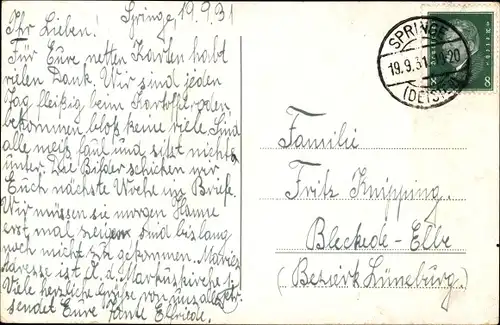 Springe, 19.9.31
Ihr Lieben!
Für Eure netten Karten habt
vielen Dank. Wir sind jeden
Tag fleißig beim Kartoffelroden
bekommen bloß keine viele. Sind
alle weiß faul und sitzt nichts
unter. Die Bilder schicken wir
Euch nächste Woche im Briefe.
Wir müssen sie morgen Hanne
erst mal zeigen sind bis lang
noch nicht zu gekommen. Maries
Adresse ist a. d. Markuskirche 1.
Viele herzliche Grüße von uns allen
sendet Eure Tante Elfriede.
SPRINGE
19.9.31
(DEISTER)
8
Familie
Fritz Knipping.
Bleckede-Elbe
(Bezirk Lüneburg.)